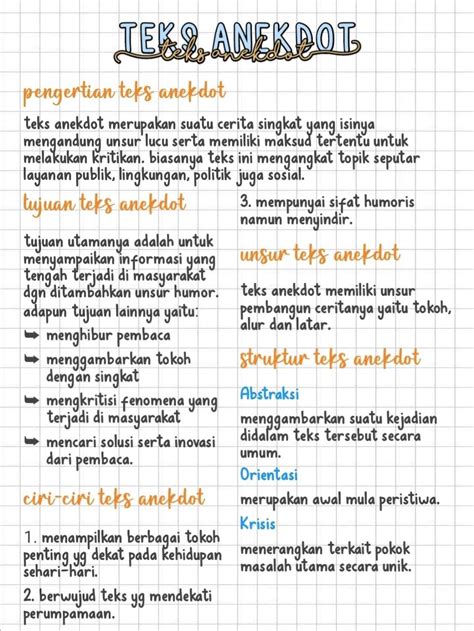 TEKS ANEKDOT
teks anekdot
pengertian teks anekdot
teks anekdot merupakan suatu cerita singkat yang isinya
mengandung unsur lucu serta memiliki maksud tertentu untuk
melakukan kritikan. biasanya teks ini mengangkat topik seputar
layanan publik, lingkungan, politik juga sosial.
tujuan teks anekdot
tujuan utamanya adalah untuk
menyampaikan informasi yang
tengah terjadi di masyarakat
dgn ditambahkan unsur humor.
adapun tujuan lainnya yaitu:
➥ menghibur pembaca
➥ menggambarkan tokoh
dengan singkat
➥ mengkritisi fenomena yang
terjadi di masyarakat
➥ mencari solusi serta inovasi
dari pembaca.
ciri-ciri teks anekdot
1. menampilkan berbagai tokoh
penting yg dekat pada kehidupan
sehari-hari.
2. berwujud teks yg mendekati
perumpamaan.
3. mempunyai sifat humoris
namun menyindir.
unsur teks anekdot
teks anekdot memiliki unsur
pembangun ceritanya yaitu tokoh,
alur dan latar.
struktur teks anekdot
Abstraksi
menggambarkan suatu kejadian
didalam teks tersebut secara
umum.
Orientasi
merupakan awal mula peristiwa.
Krisis
menerangkan terkait pokok
masalah utama secara unik.